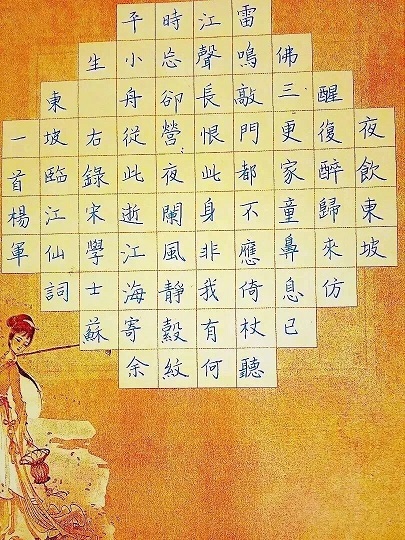 夜飲東坡
醒復醉歸來仿
佛三更家童鼻息已
雷鳴敲門都不應倚杖聽
江聲長恨此身非我有何
時忘卻營〻夜闌風靜縠紋
平小舟從此逝江海寄余
生 右錄宋學士蘇
東坡臨江仙詞
一首楊軍